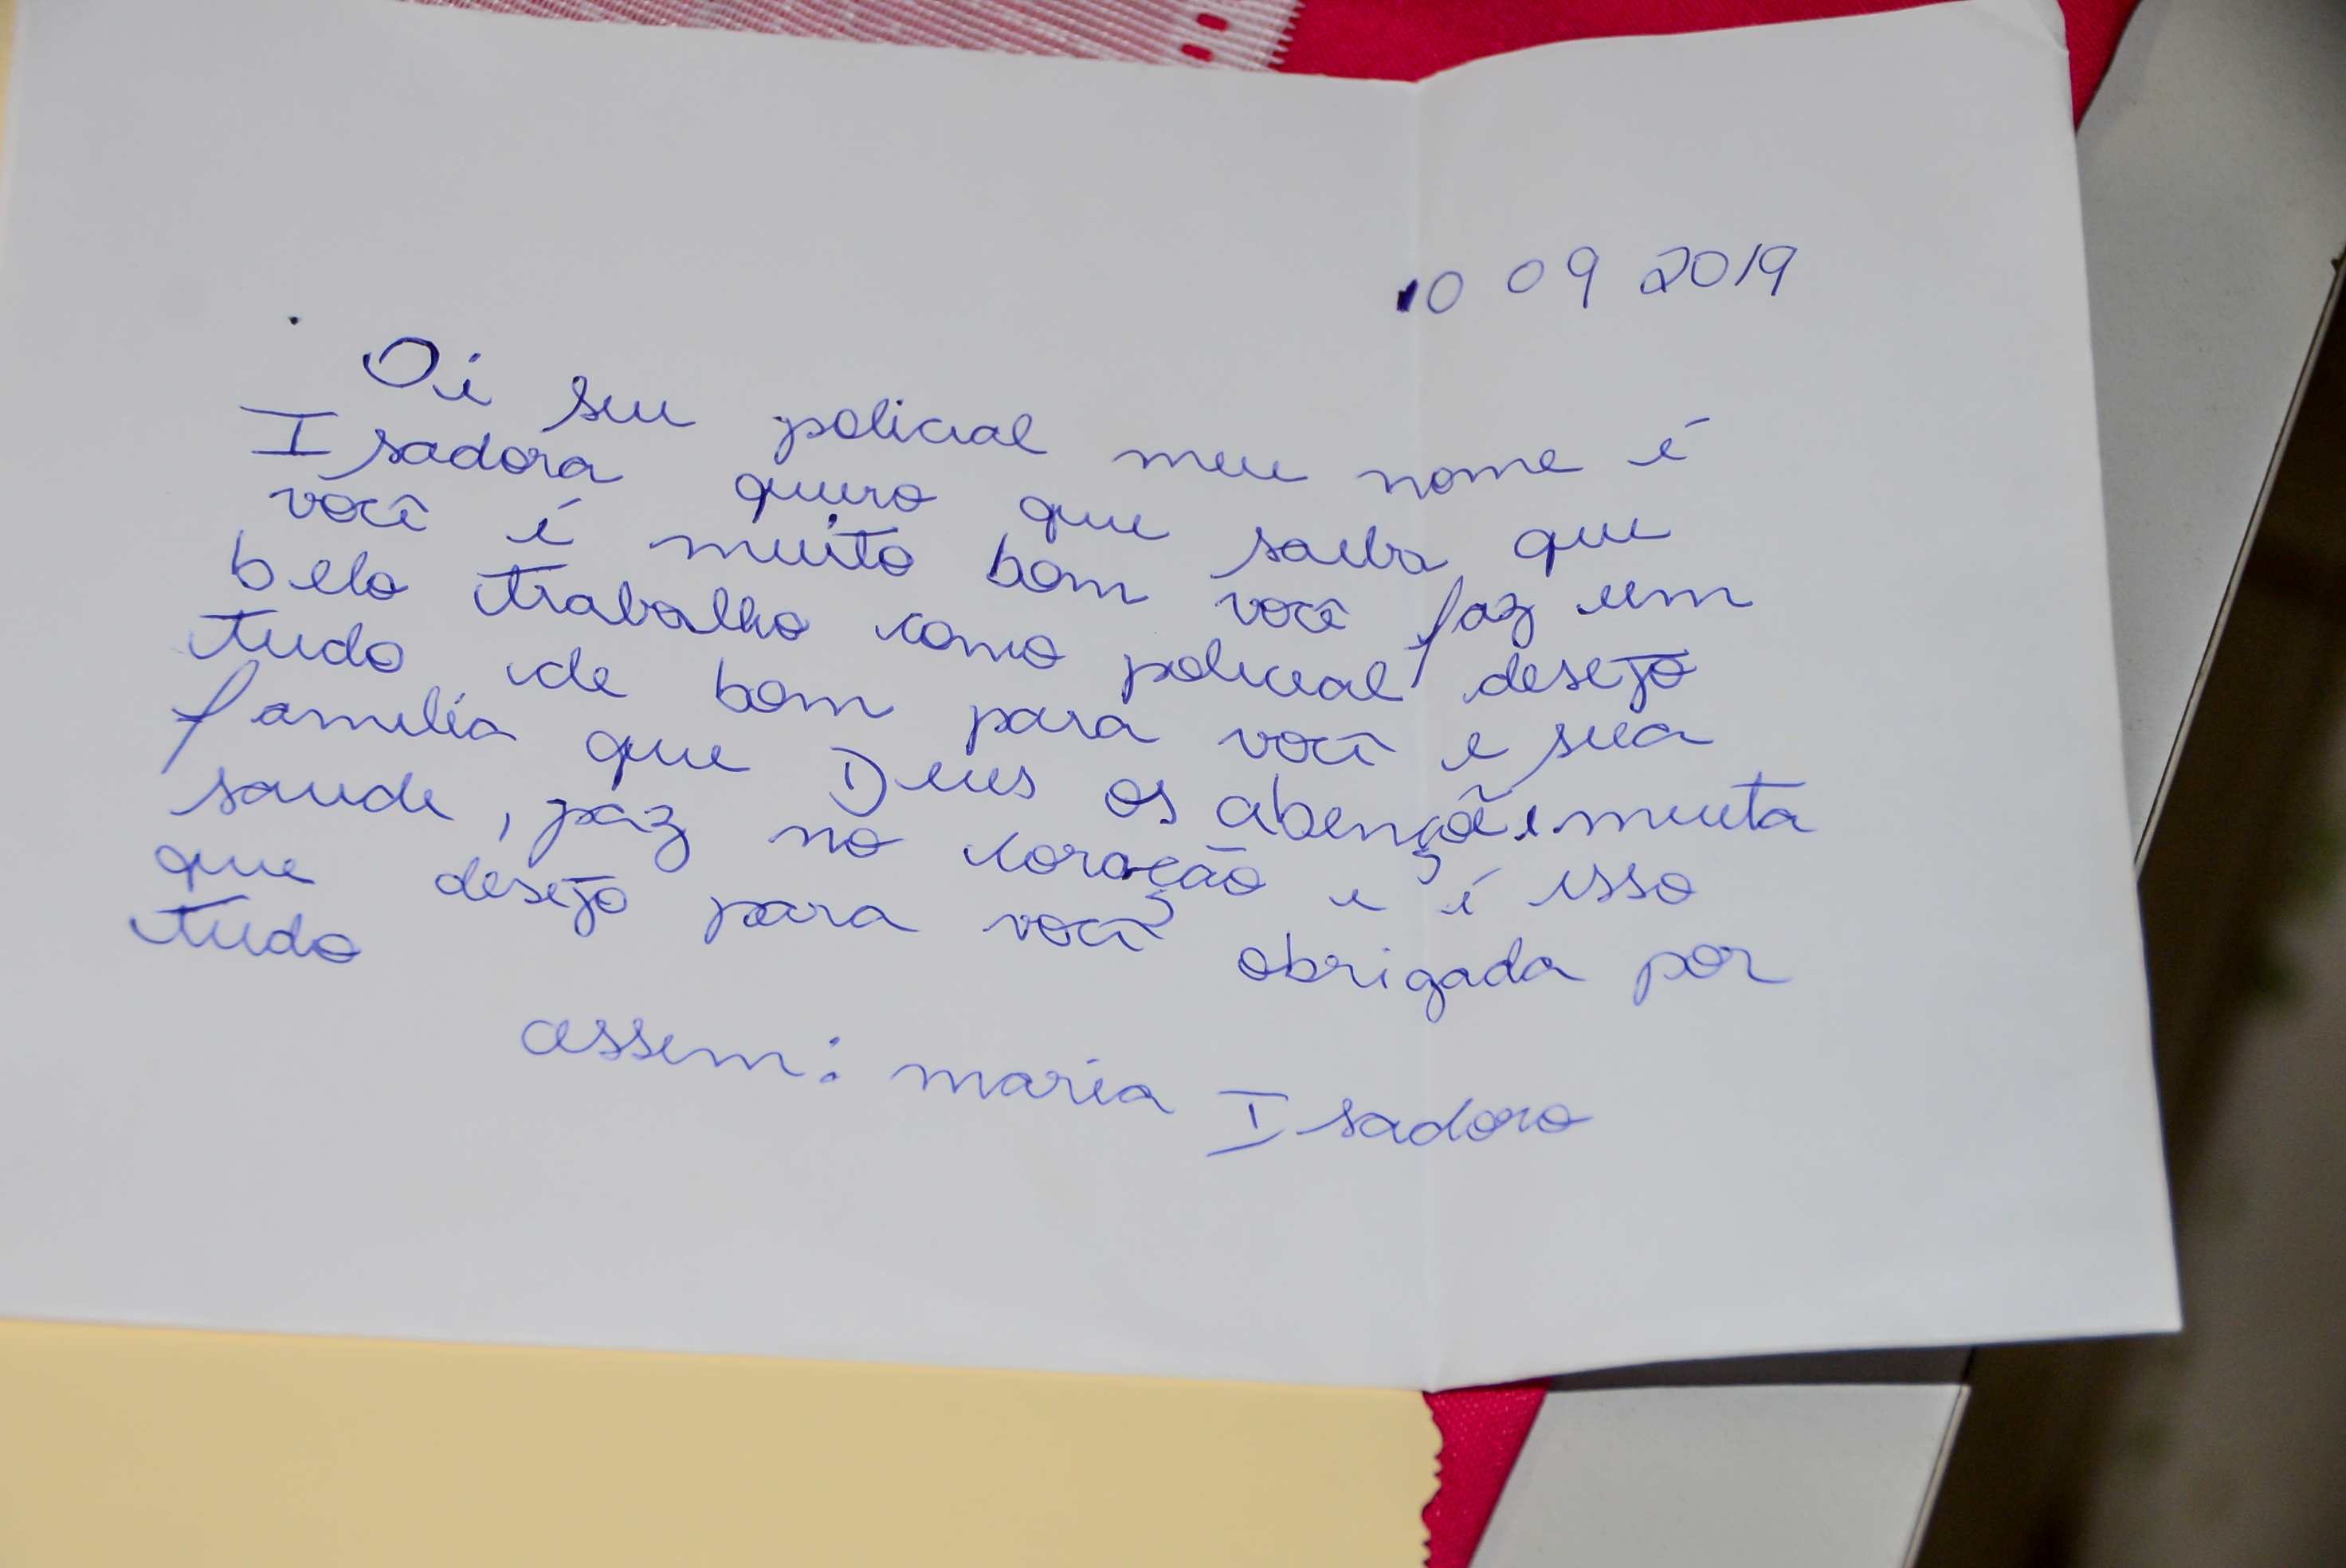 10 09 2019
Oi seu policial meu nome é
Isadora quero que saiba que
você é muito bom você faz um
belo trabalho como policial desejo
tudo de bom para você e sua
familia que Deus os abençõe muita
saude, paz no coração e é isso
que desejo para você obrigada por
tudo
assem: maria Isadora